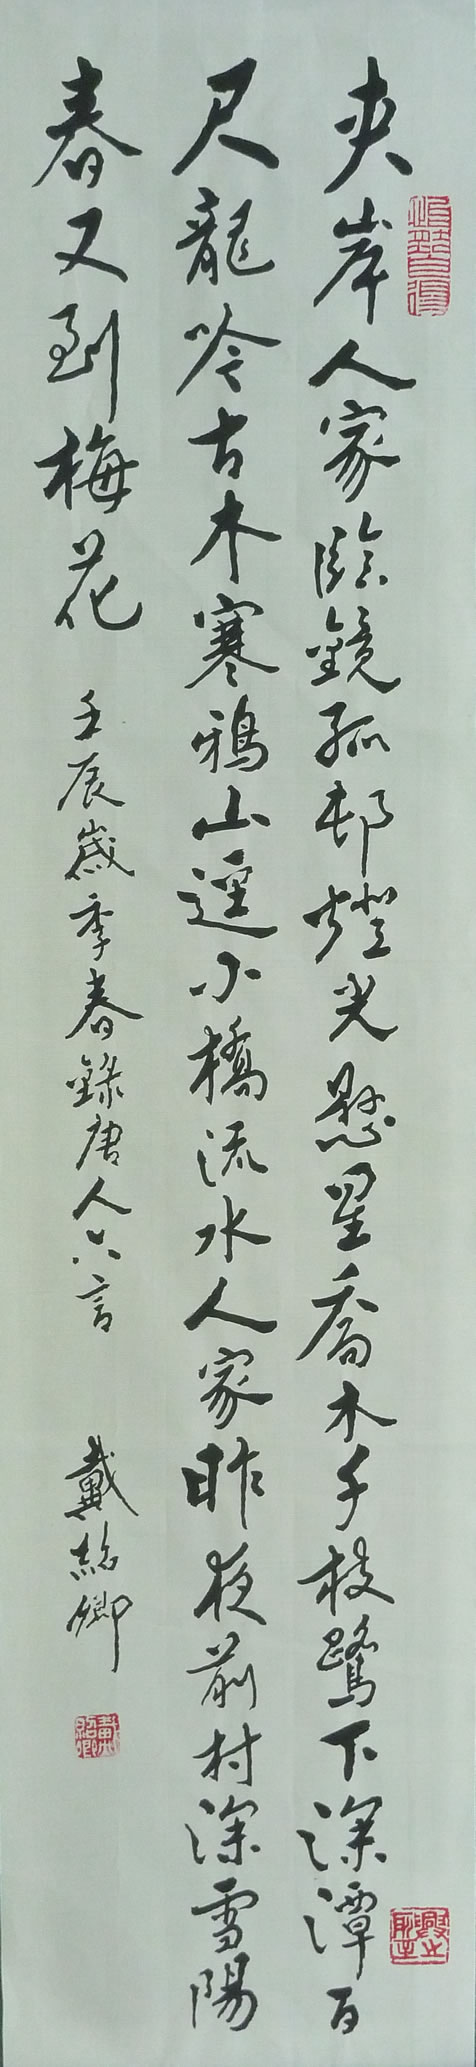 夾岸人家臨鏡孤邨燈光懸星喬木千枝鷺下深潭百
尺龍吟古木寒鴉山逕小橋流水人家昨夜前村深雪陽
春又到梅花
壬辰歲季春錄唐人六言
戴紹卿
戴紹卿
興之所至